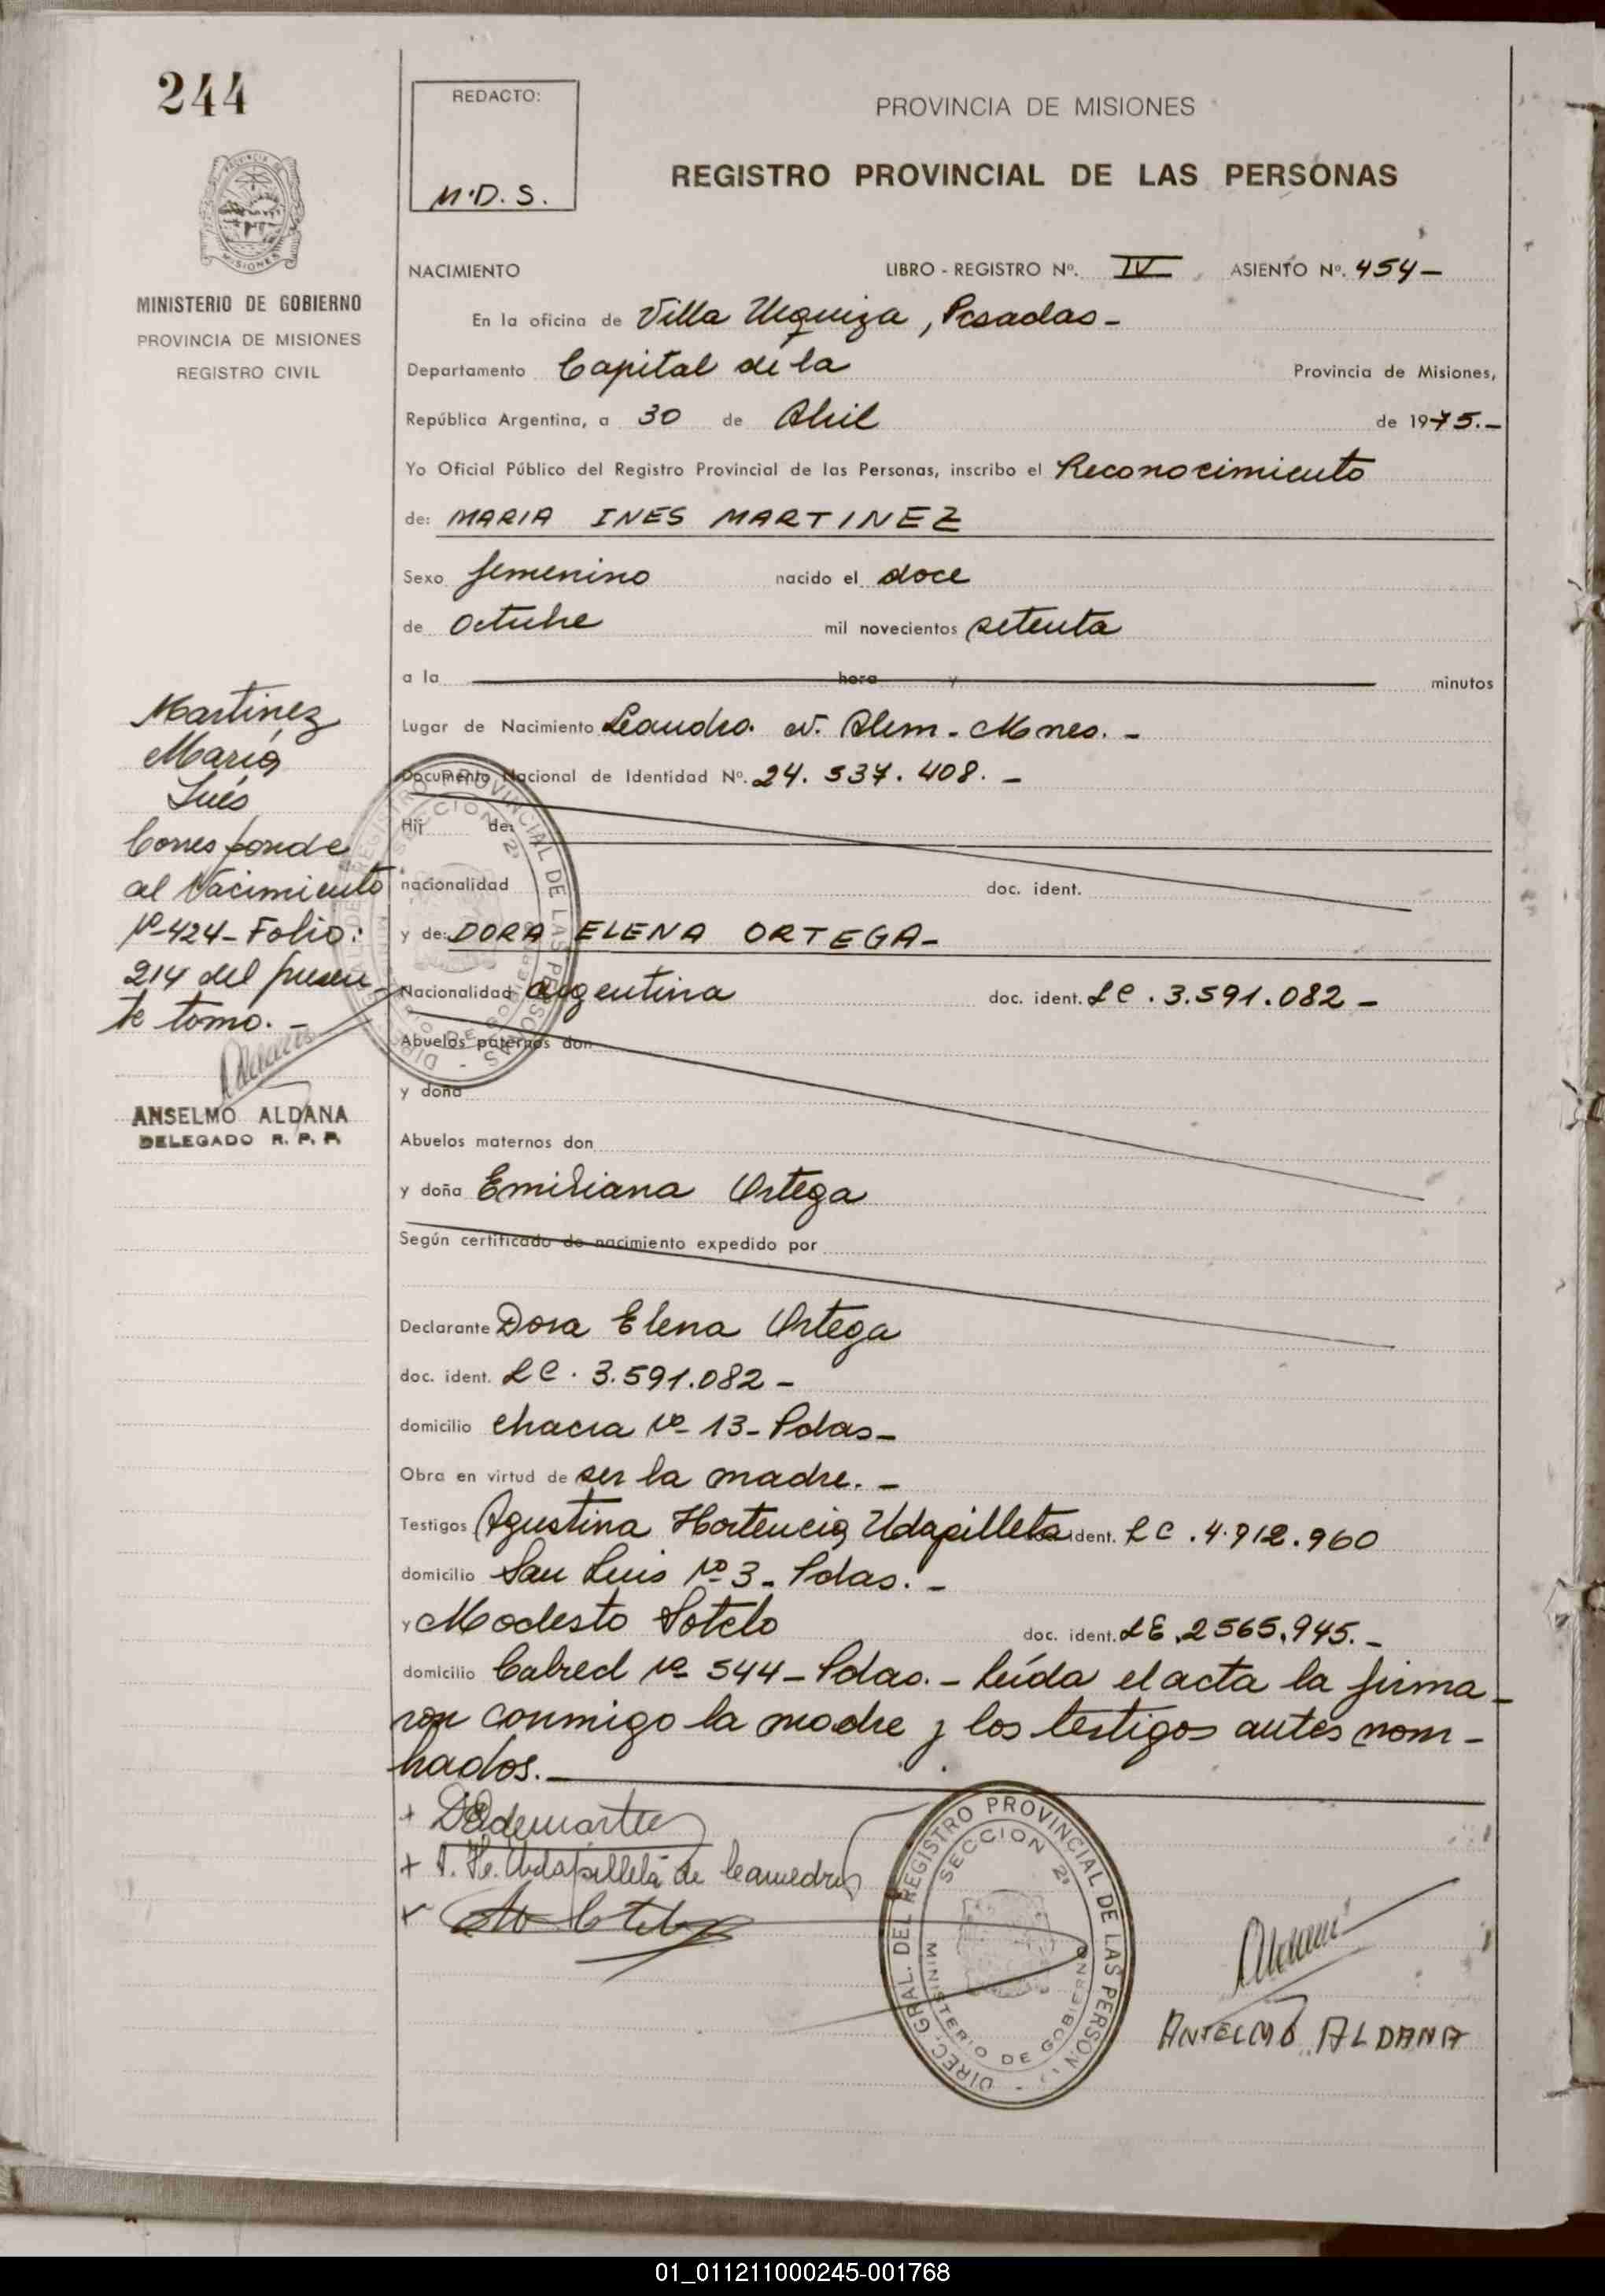 244
REDACTO:
M.D.S.
PROVINCIA DE MISIONES
REGISTRO PROVINCIAL DE LAS PERSONAS
MINISTERIO DE GOBIERNO
PROVINCIA DE MISIONES
REGISTRO CIVIL
NACIMIENTO LIBRO - REGISTRO Nº. IV ASIENTO Nº. 454-
En la oficina de Villa Urquiza, Posadas-
Departamento Capital de la Provincia de Misiones,
República Argentina, a 30 de Abril de 1975.-
Yo Oficial Público del Registro Provincial de las Personas, inscribo el Reconocimiento
de: MARIA INES MARTINEZ
Sexo femenino nacido el doce
de octubre mil novecientos setenta
a la hora y minutos
Lugar de Nacimiento Leandro. N. Alem - Mnes. -
Documento Nacional de Identidad Nº. 24.537.408. -
Hij de:
nacionalidad doc. ident.
y de: DORA ELENA ORTEGA-
Nacionalidad argentina doc. ident. LC. 3.591.082 -
Abuelos paternos don
y doña
Abuelos maternos don
y doña Emiliana Ortega
Según certificado de nacimiento expedido por
Declarante Dora Elena Ortega
doc. ident. LC. 3.591.082 -
domicilio Chacra Nº 13- Pdas-
Obra en virtud de ser la madre. -
Testigos Agustina Hortencia Udapilleta ident. LC. 4.912.960
domicilio San Luis Nº 3- Pdas. -
y Modesto Sotelo doc. ident. LE. 2565.945. -
domicilio Cabred Nº 544- Pdas. - Leída el acta la firma-
ron conmigo la madre y los testigos antes nom-
brados. -
Martinez
María
Inés
Corresponde
al Nacimiento
Nº 424- Folio:
214 del presen-
te tomo. -
Aldana
ANSELMO ALDANA
DELEGADO R. P. P.
DIREC. GRAL. DEL REGISTRO PROVINCIAL DE LAS PERSONAS
SECCION 2ª
MINISTERIO DE GOBIERNO
+ A. H. Udapilleta de
+
DIREC. GRAL. DEL REGISTRO PROVINCIAL DE LAS PERSON
SECCION 2ª
MINISTERIO DE GOBIERNO
Aldana
ANTELMO ALDANA
01_011211000245-001768